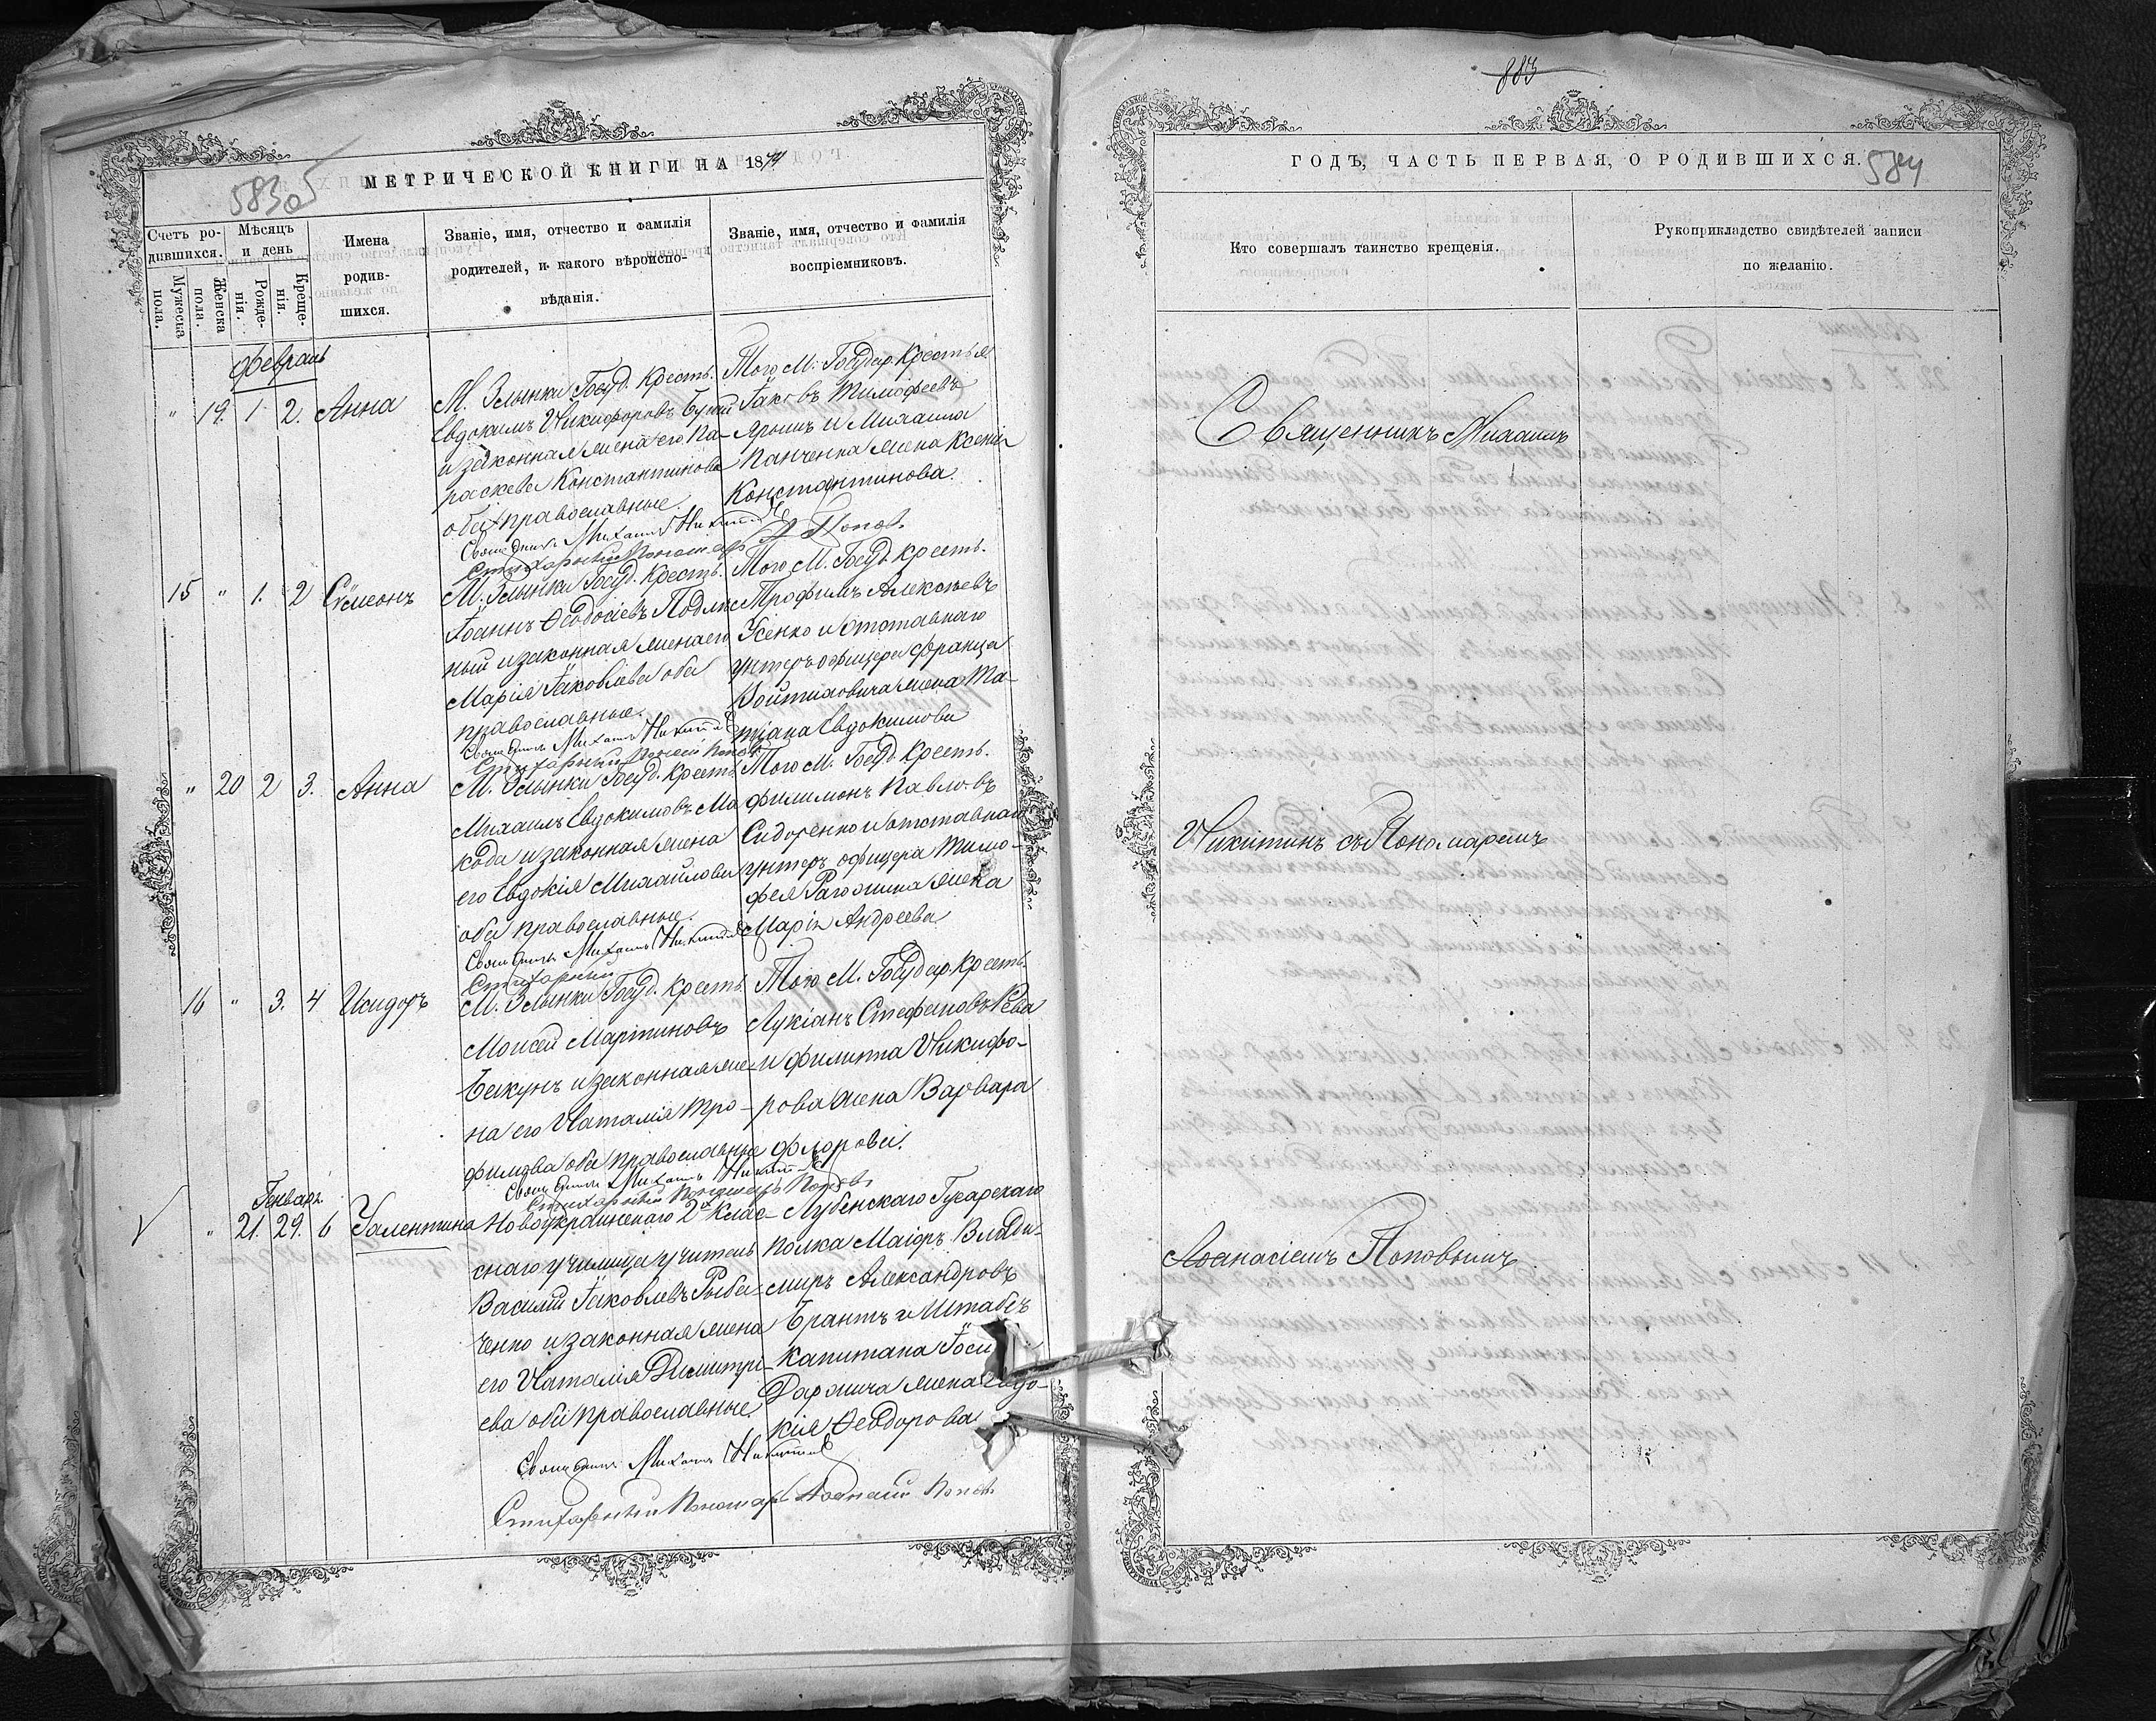 583 об
МЕТРИЧЕСКОЙ КНИГИ НА 18
Счетъ ро-
дившихся.
Мѣсяцъ
и день
Имена
родив-
шихся.
Званіе, имя, отчество и фамилія
родителей, и какого вѣроиспо-
вѣданія.
Званіе, имя, отчество и фамилія
воспріемниковъ.
Мужеска
пола.
Женска
пола.
Рожде-
нія.
Креще-
нія.
Февраль
" 19. 1. 2. Анна
М. Злынки Госуд. Крестъ.
Евдокимъ Никифоровъ
и законная жена его Па-
раскева Константинова
оба православные.
Священникъ Михаилъ Никитин
Стихарный Пономарь А Попов.
Того М. Государ. Крестья
Іаковъ Тимофеевъ
Ярошъ и Михаила
Панченка жена Ксенія
Константинова.
15 " 1. 2 Сѵмеонъ
М. Злынки Госуд. Крестъ.
Іоаннъ Ѳеодосіевъ Подлѣс
ный и законная жена его
Марія Іаковлева оба
православные.
Священникъ Михаилъ Никитин
Стихарный Попов
Того М. Госуд. крестъ.
Трофимъ Алексѣевъ
Усенко и отставнаго
унтеръ офицера Франца
Войтиховича жена Та-
тіана Евдокимова
" 20 2 3. Анна
М. Злынки Госуд. Крестъ
Михаилъ Евдокимовъ Ма
кода и законная жена
его Евдокія Михайлова
оба православные.
Священникъ Михаилъ Никитин
Стихарный
Того М. Госуд. Крестъ.
Филимонъ Павловъ
Сидоренко и отставнаго
унтеръ офицера Тимо-
фея Рагожина жена
Марія Андреева
16 " 3. 4 Исидоръ
М. Злынки Госуд. Крестъ.
Моисей Мартиновъ
Бакунъ и законная же-
на его Наталія Тро-
фимова оба православные
Священникъ Михаилъ Никитин
Стихарный Пономарь Попов
Того М. Государ. Крестъ.
Лукіанъ Стефановъ Рева
и Филиппа Никифо-
рова жена Варвара
Флорова.
Генварь
" 21. 29. 6 Валентина
Новоукраинскаго 2х Клас-
снаго училища учитель
Василій Іаковлевъ Рыба-
ченко и законная жена
его Наталія Димитрі-
ева оба православные.
Священникъ Михаилъ Никитин
Стихарный Пономарь Аѳанасій Попов
Лубенскаго Гусарскаго
полка Маіоръ Влади-
миръ Александровъ
Брантъ и Штабсъ
Капитана
жена Евдо-
кія Ѳеодорова
883
584
ГОДЪ, ЧАСТЬ ПЕРВАЯ, О РОДИВШИХСЯ.
Кто совершалъ таинство крещенія.
Рукоприкладство свидѣтелей записи
по желанію.
Священникъ Михаилъ
Никитинъ съ Пономаремъ
Аѳанасіемъ Поповымъ